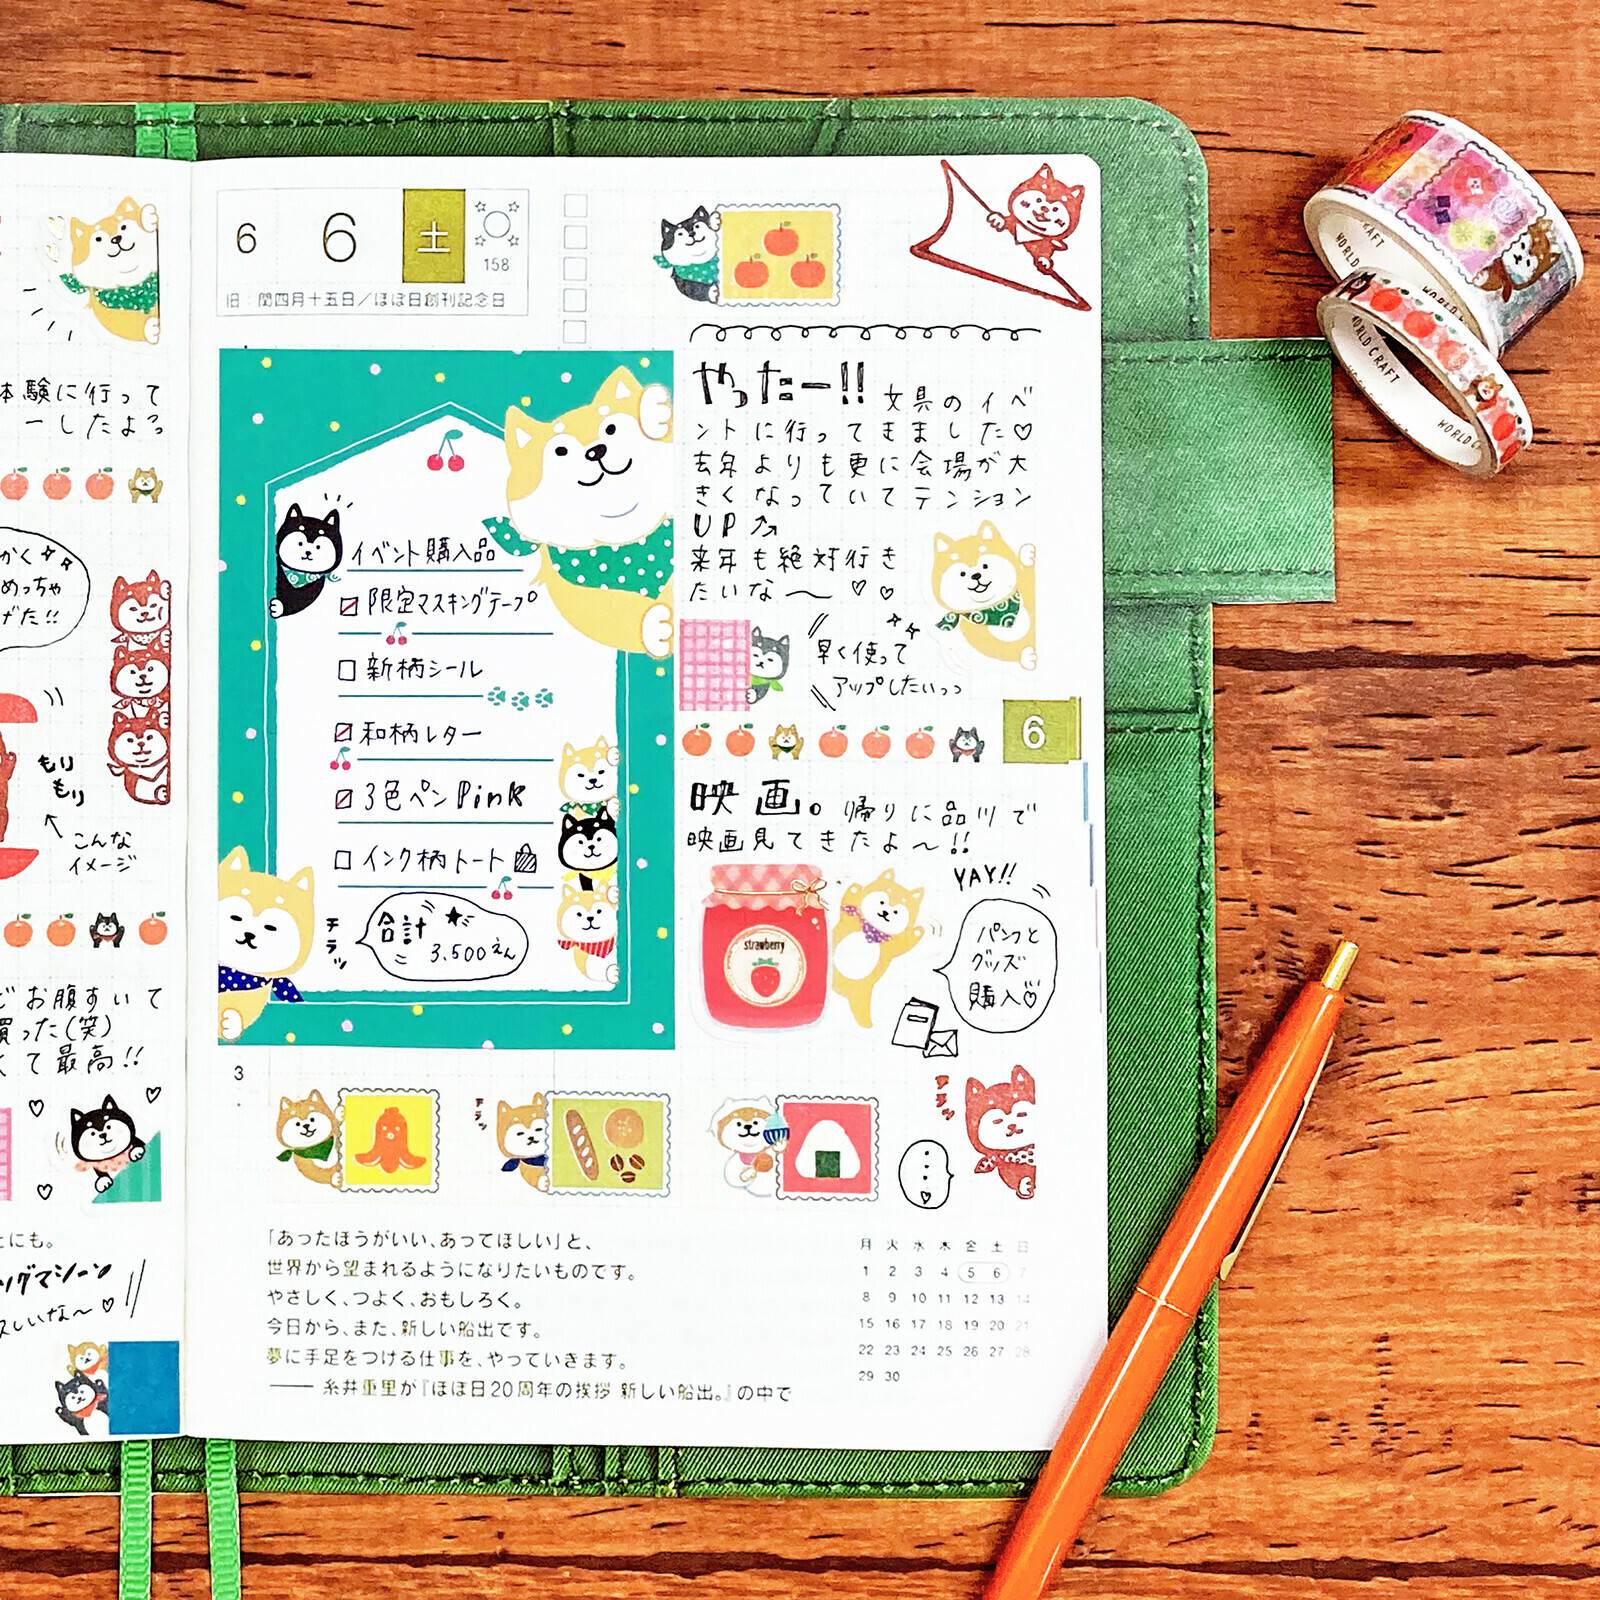 体験に行って
ーしたよっ
かく
めっちゃ
げた!!
もり
もり
こんな
イメージ
どお腹すいて
買った(笑)
くて最高!!
とにも。
ッグマシーン
しいな〜♡
6 6 土
158
旧:閏四月十五日/ほぼ日創刊記念日
イベント購入品
限定マスキングテープ
新柄シール
和柄レター
3色ペン Pink
インク柄トート
チラッ
合計
3.500えん
3
やったー!! 文具のイベ
ントに行ってきました♡
去年よりも更に会場が大
きくなっていてテンション
UP
来年も絶対行き
たいな〜 ♡♡
早く使って
アップしたいっっ
6
映画。帰りに品川で
映画見てきたよ〜!!
strawberry
YAY!!
パンフと
グッズ
購入♡
チラッ
チラッ
「あったほうがいい、あってほしい」と、
世界から望まれるようになりたいものです。
やさしく、つよく、おもしろく。
今日から、また、新しい船出です。
夢に手足をつける仕事を、やっていきます。
—— 糸井重里が『ほぼ日20周年の挨拶 新しい船出。』の中で
月 火 水 木 金 土 日
1 2 3 4 5 6 7
8 9 10 11 12 13 14
15 16 17 18 19 20 21
22 23 24 25 26 27 28
29 30
WORLD CRAFT
WORLD CRAFT